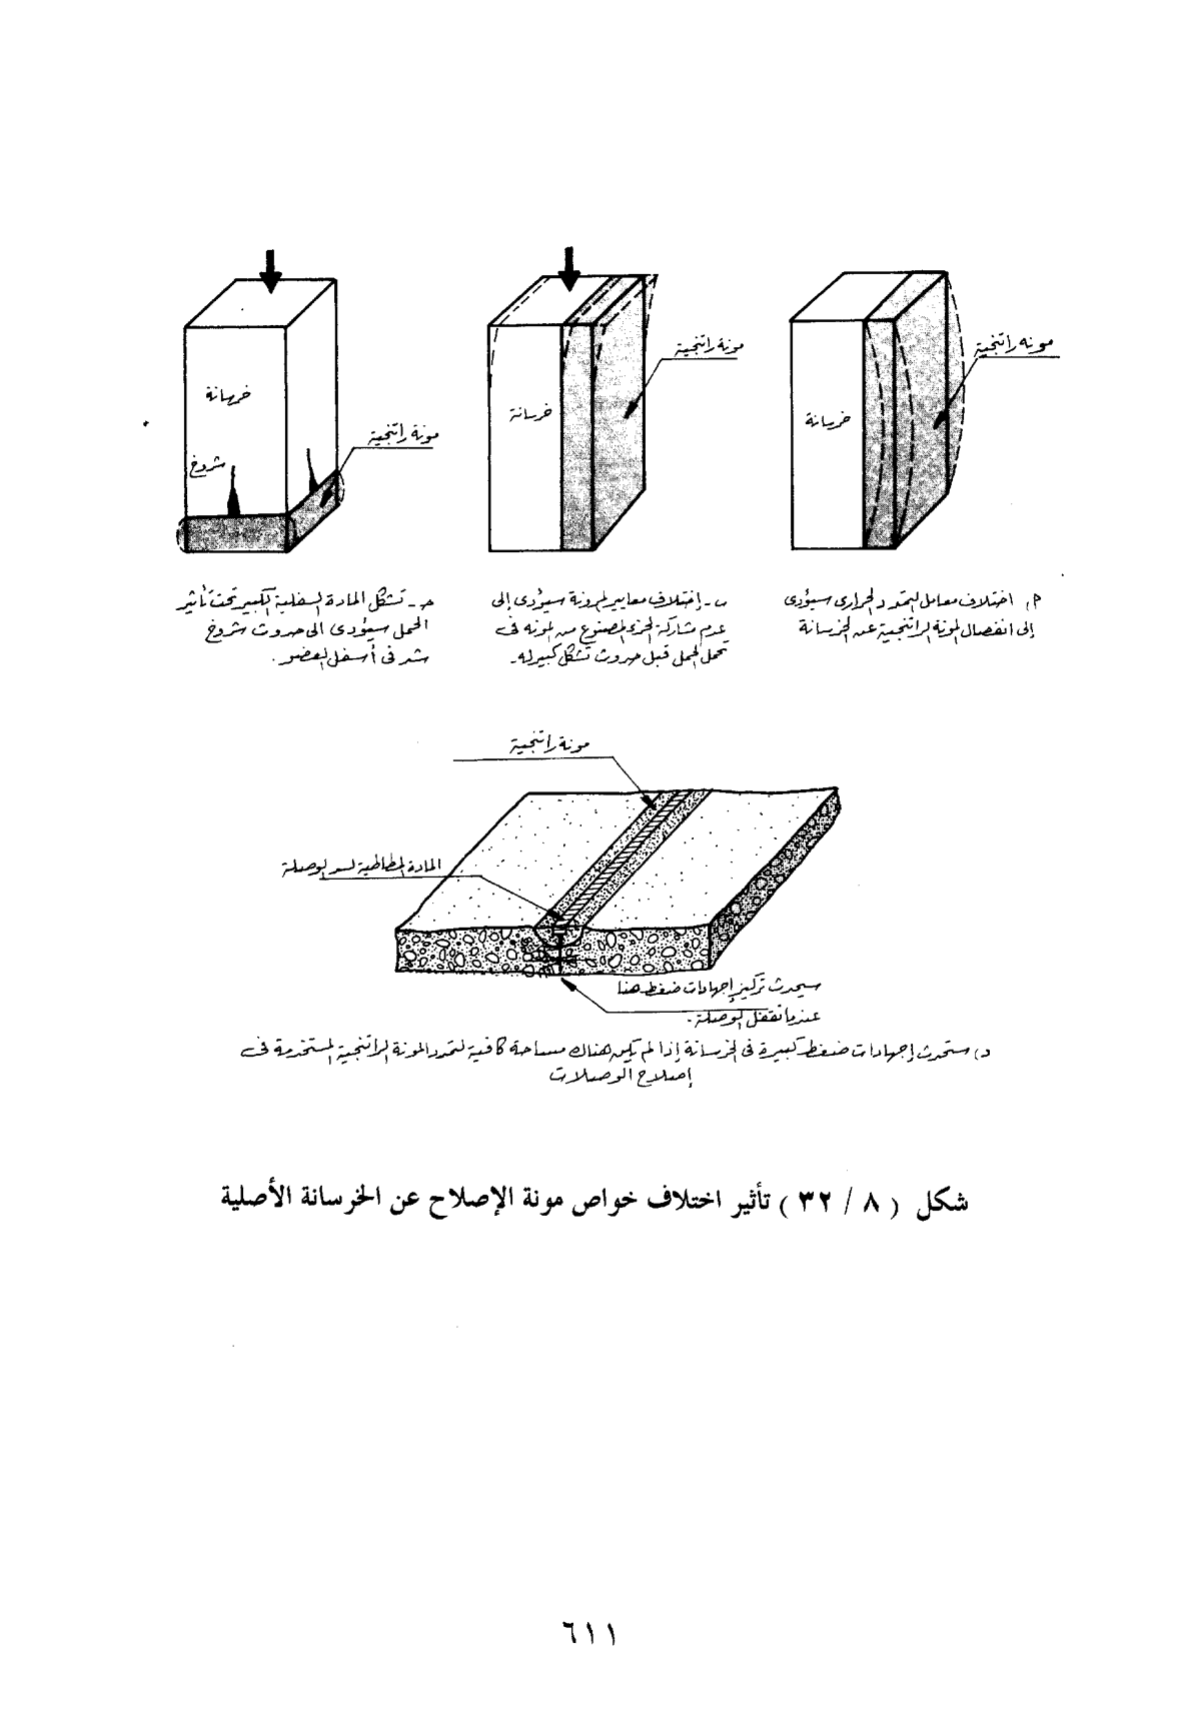 مونة راتنجية
خرسانة
أ، اختلاف معامل التمدد الحرارى سيؤدى
إلى انفصال المونة الراتنجية عن الخرسانة
مونة راتنجية
خرسانة
ب - إختلاف معايير المرونة سيؤدى إلى
عدم مشاركة الجزء المصنوع من المونه فى
تحمل الحمل قبل حدوث تشكل كبير له.
خرسانة
مونة راتنجية
شروخ
حـ - تشكل المادة السفلية الكبير تحت تأثير
الحمل سيؤدى الى حدوث شروخ
شد فى أسفل العضو .
مونة راتنجية
المادة المطاطية لسد الوصلة
سيحدث تركيز إجهادات ضغط هنا
عندما تقفل الوصلة -
د) ستحدث إجهادات ضغط كبيرة فى الخرسانة إذا لم يكن هناك مساحة كافية لتمدد المونة الراتنجية المستخدمة فى
إصلاح الوصلات
شكل ( ٨ / ٣٢ ) تأثير اختلاف خواص مونة الإصلاح عن الخرسانة الأصلية
٦١١